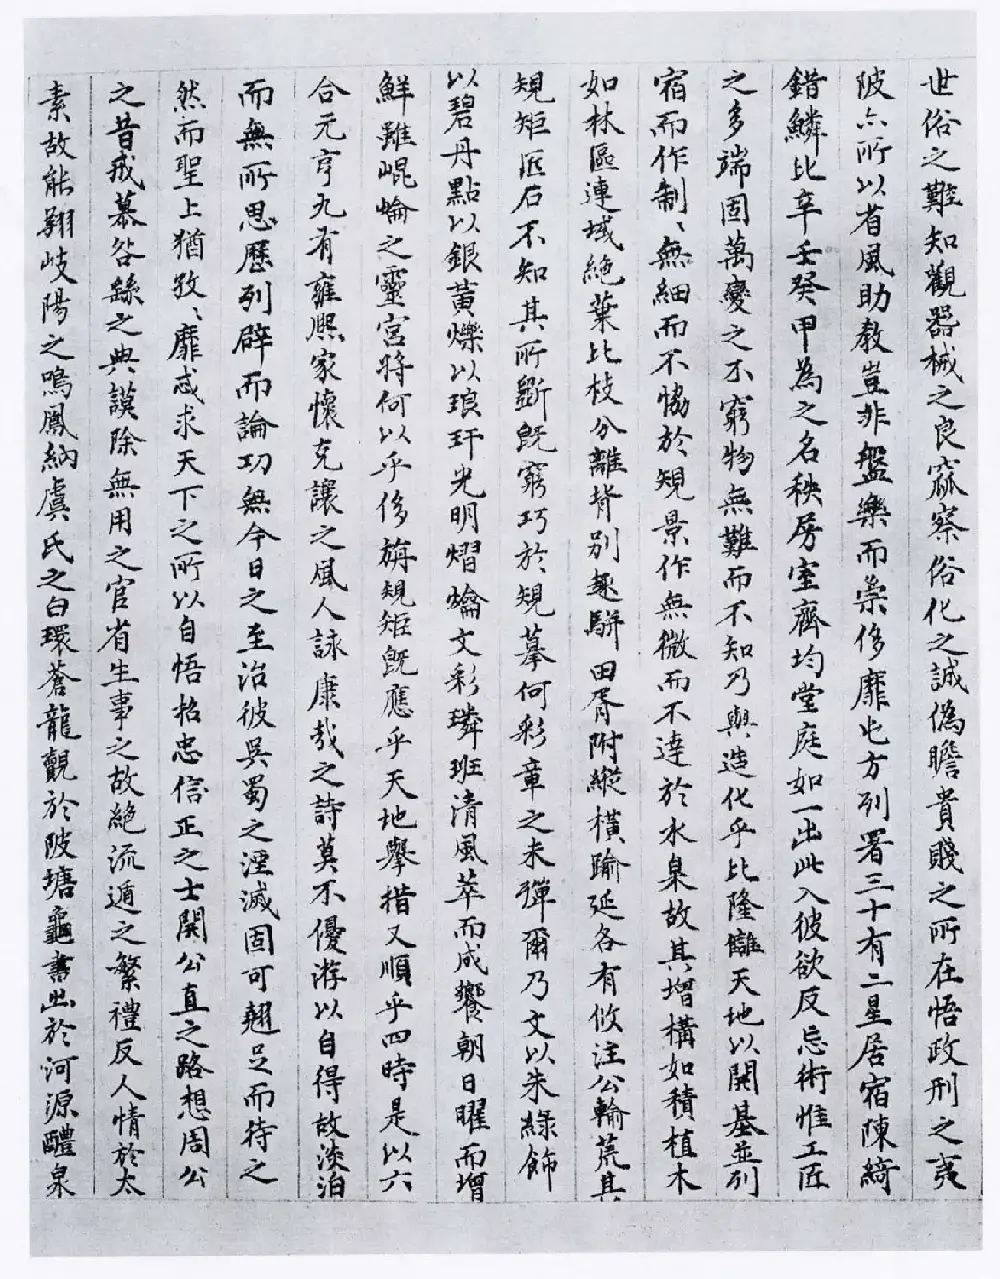 世俗之難知觀器械之良窳察俗化之誠偽瞻貴賤之所在悟政刑之夷
陂亦所以省風助教豈非盤樂而崇侈靡屯方列署三十有二星居宿陳綺
錯鱗比辛壬癸甲為之名秩房室齊均堂庭如一出此入彼欲反忘術惟工匠
之多端固萬變之不窮物無難而不知乃與造化乎比隆讎天地以開基並列
宿而作制、無細而不恊於規景作無微而不達於水臬故其增構如積植木
如林區連域絕葉比枝分離背別趣駢田胥附縱橫踰延各有攸注公輸荒其
規矩匠石不知其所斲既窮巧於規摹何彩章之未殫爾乃文以朱綠飾
以碧丹點以銀黃爍以琅玕光明熠爚文彩璘班清風萃而成響朝日曜而增
鮮雖崐崘之靈宮將何以乎侈旃規矩既應乎天地舉措又順乎四時是以六
合元亨九有雍熙家懷克讓之風人詠康哉之詩莫不優游以自得故淡泊
而無所思歷列辟而論功無今日之至治彼吳蜀之湮滅固可翹足而待之
然而聖上猶孜、靡忒求天下之所以自悟招忠信正之士開公直之路想周公
之昔戒慕咎繇之典謨除無用之官省生事之故絕流遁之繁禮反人情於太
素故能翔岐陽之鳴鳳納虞氏之白環蒼龍覿於陂塘龜書出於河源醴泉